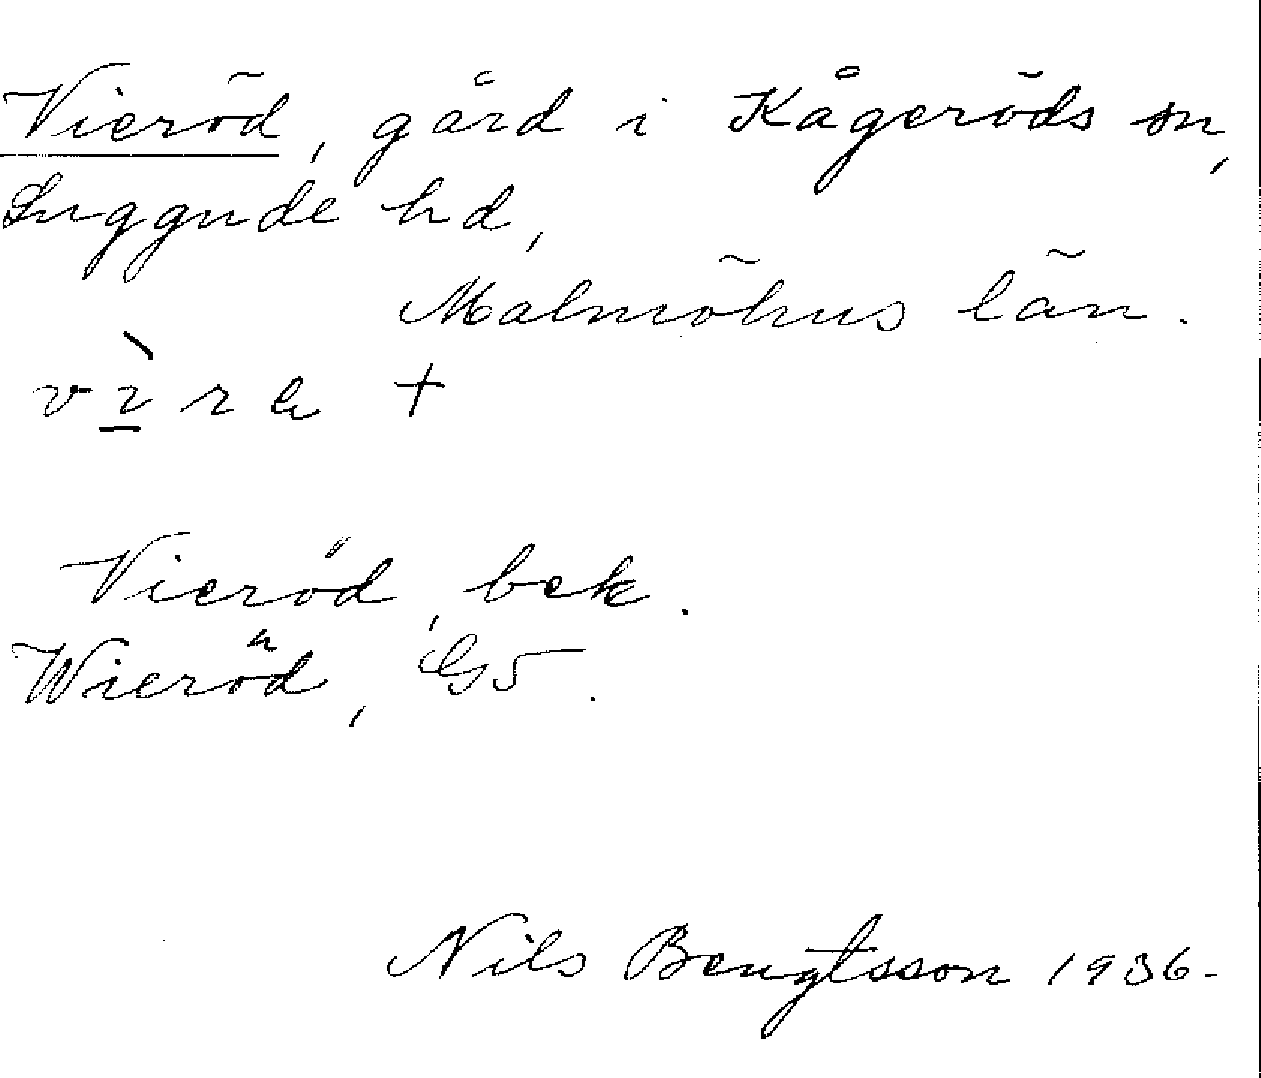 Vieröd, gård i Kågeröds sn,
Luggude hd,
Malmöhus län.
Vieröd, bek.
Wieröd, G5.
Nils Bengtsson 1936-